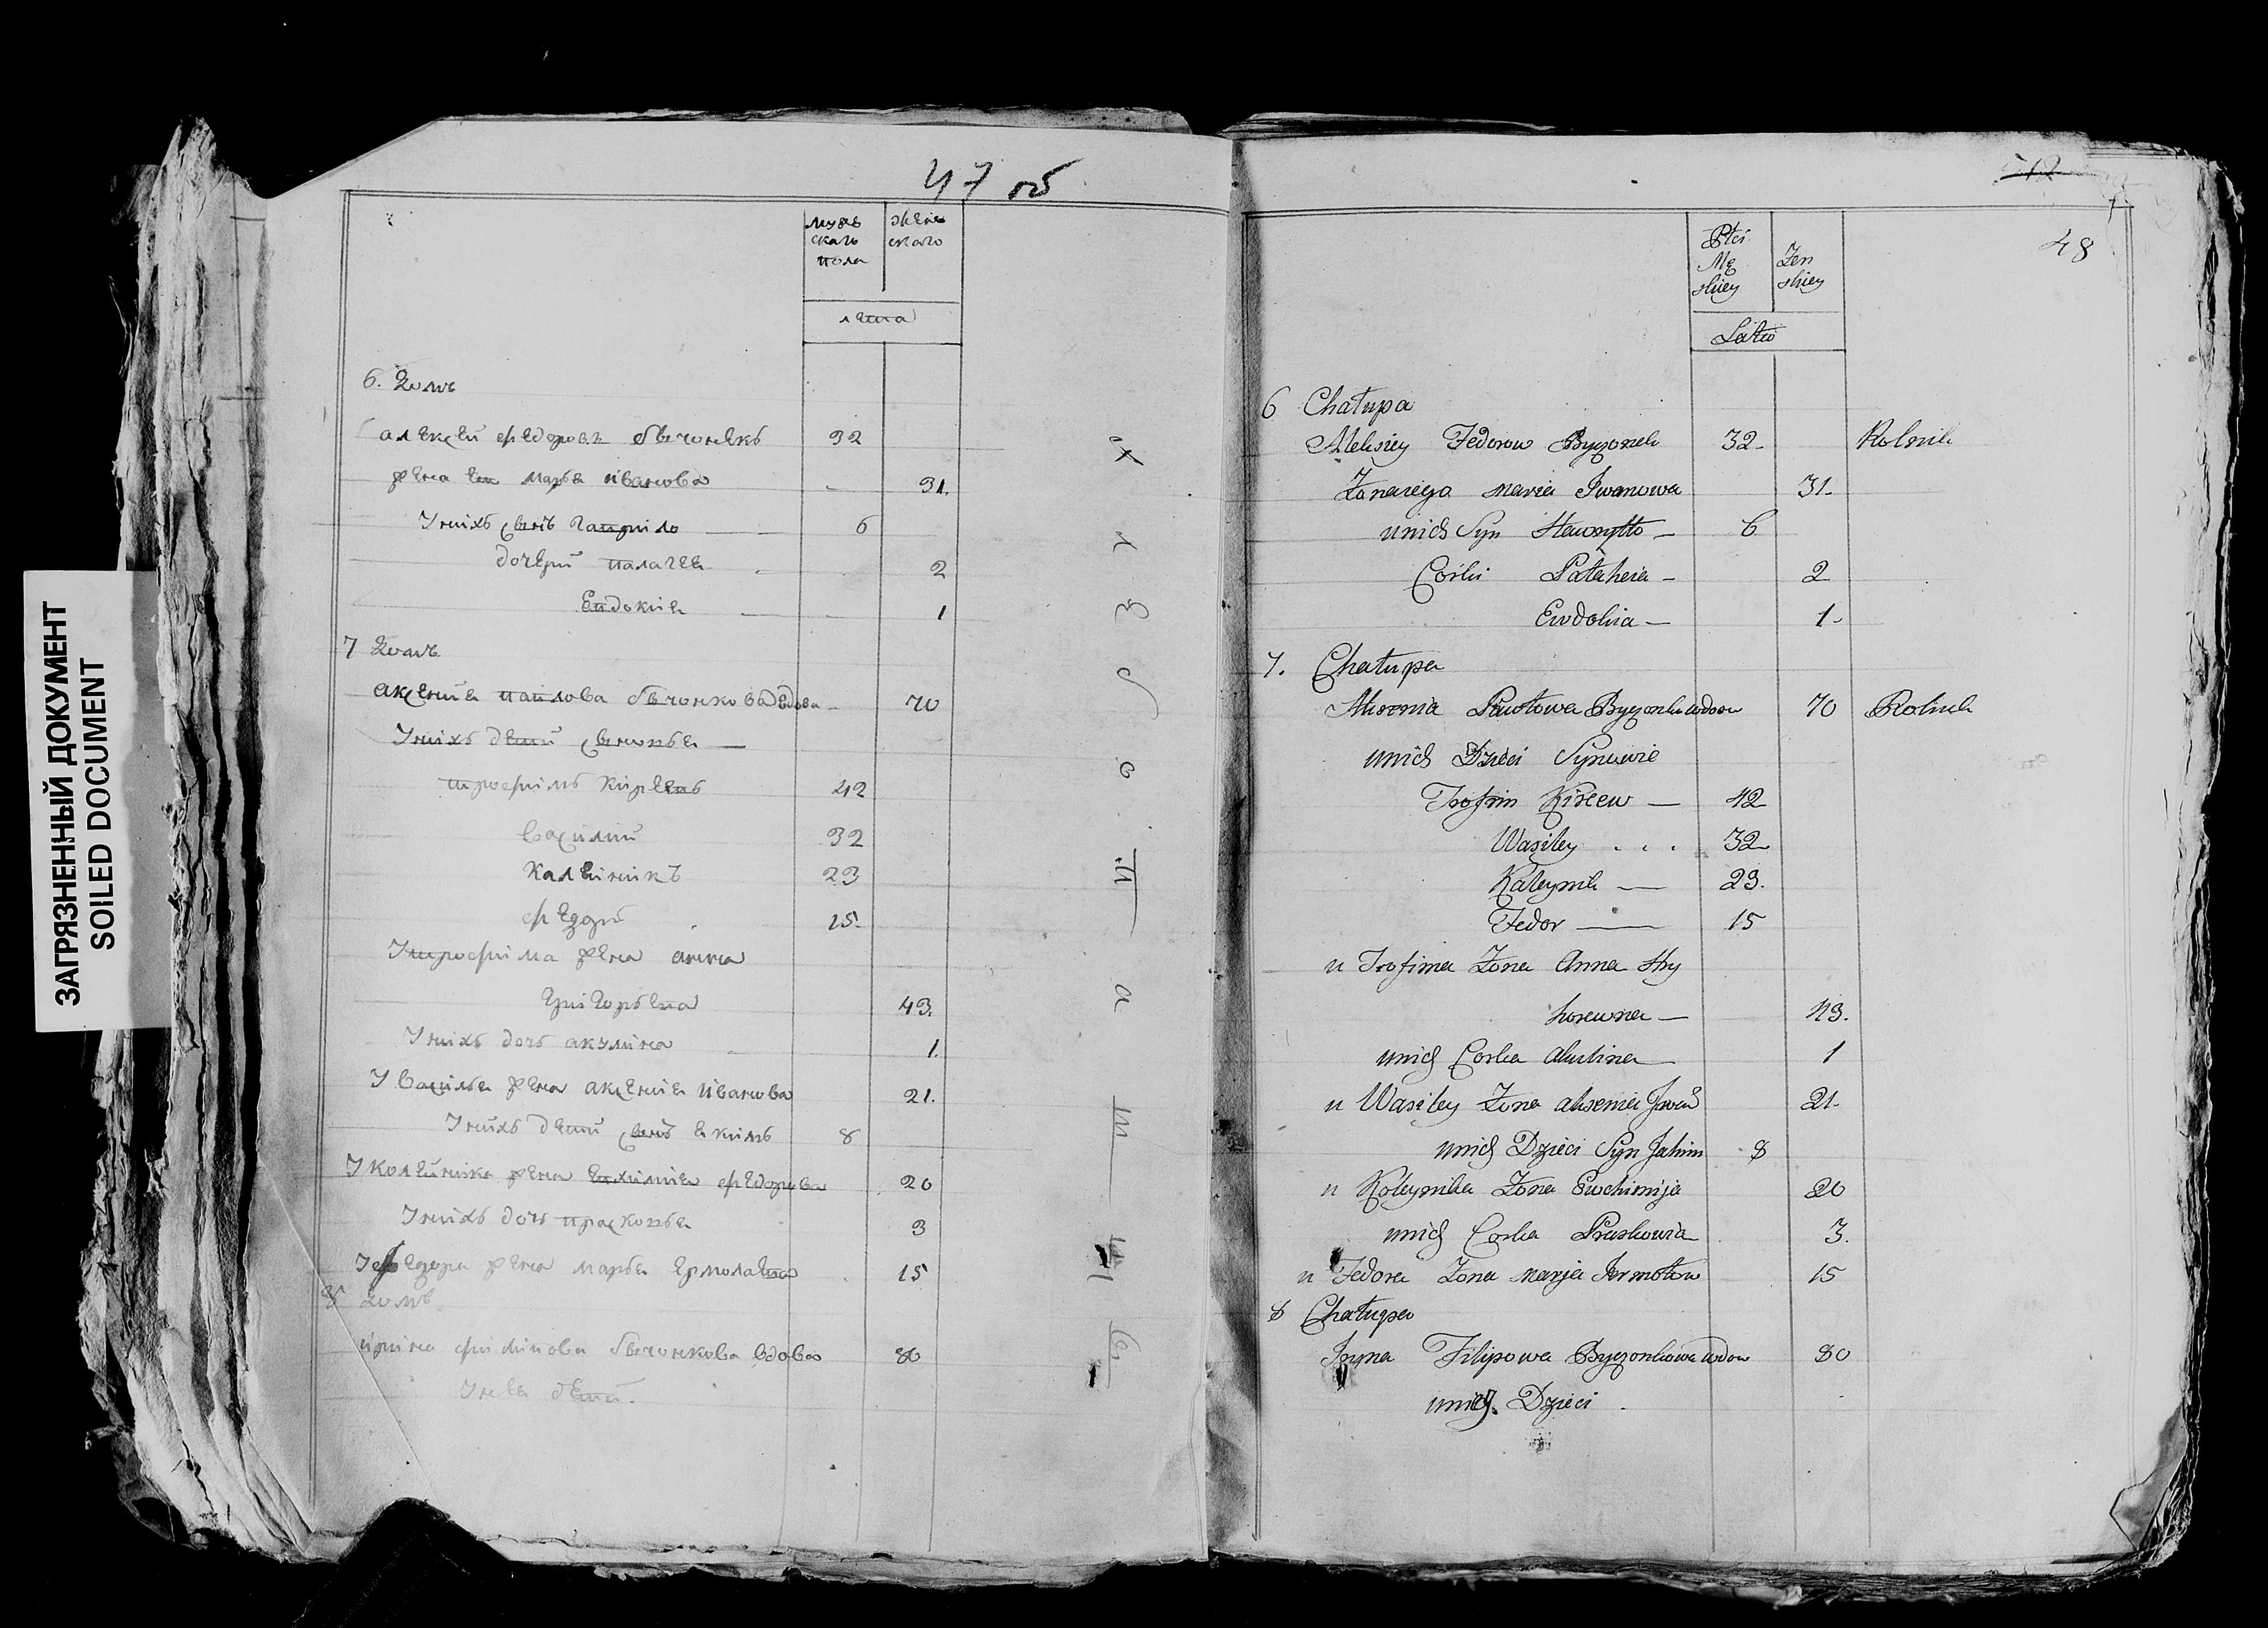 ЗАГРЯЗНЕННЫЙ ДОКУМЕНТ
SOILED DOCUMENT
47 об
мужс
скаго
пола
женс
скаго
лета
6. Домъ
алексей федоровъ бычонекъ 32
жена ево марья иванова 31.
Уних сынъ гаврило 6
дочери палагея 2
Евдокия 1
7 Домъ
аксения павлова бычонкова вдова 70
Уних детей сыновья
трофимъ киреевъ 42
василий 32
калейникъ 23
федоръ 15.
Утрофима жена анна
григорьева 43.
Уних дочь акулина 1.
Увасилья жена аксения иванова 21.
Уних детей сынъ екимъ 8
Уколейника жена евхимия федорова 20
Уних дочь прасковья 3
Уфедора жена марья ермолаева 15
8 Домъ
ирина филипова бычонкова вдова 80
Унея детей.
48
Płci
Mę
skiey
Zen
skiey
Latu
6 Chałupa
Aleksiey Fedorow Byczonek 32 Rolnik
Zona iego maria Iwanowa 31.
unich Syn Hawryłło 6
Corki Pałaheia 2
Ewdokia 1
7. Chałupa
Aksenia Pawłowa Byczonkowa wdowa 70 Rolnik
unich Dzieci Synowie
Trofim Kireew 42
Wasiley . . . 32
Kaleynik 23.
Fedor 15
u Trofima Zona Anna Hry
horewna 43.
unich Corka akulina 1
u Wasiley Zona aksenia Iwan 21.
unich Dzieci Syn Jakim 8
u Koleynika Zona Ewchimija 20
unich Corka Praskowia 3.
u Fedora Zona marja Jermołow 15
8 Chałupa
Iryna Filipowa Byczonkowa wdow 80
unich Dzieci